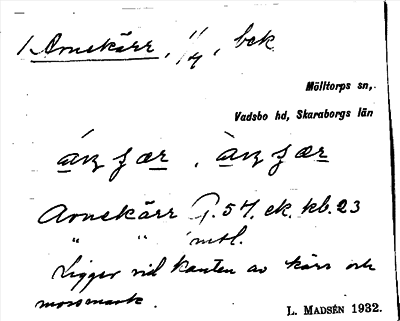 1. Arnekärr, 11/4, bek.
Mölltorps sn,
Vadsbo hd, Skaraborgs län
Arnekärr G. 57. ek. kb. 23
" " mtl.
Ligger vid kanten av kärr och
mossmark.
L. MADSÉN 1932.